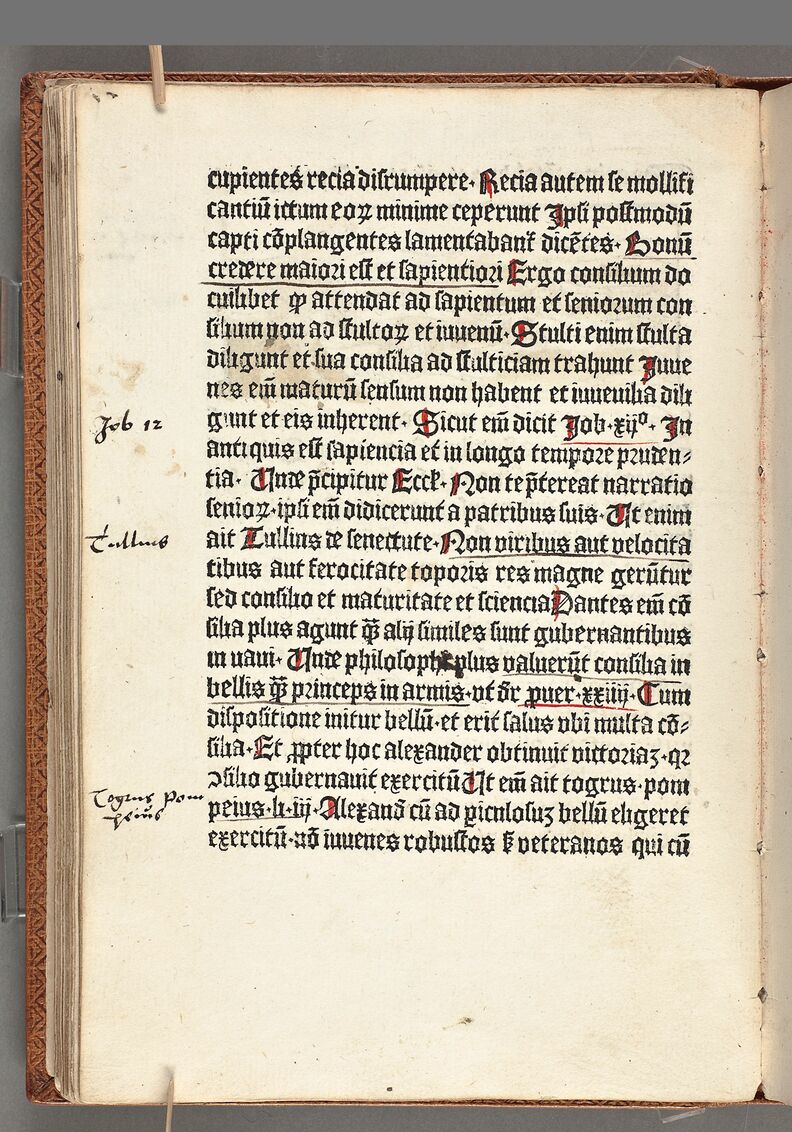 cupientes recia disrumpere· Recia autem se mollifi
cantiū ictum eoꝝ minime ceperunt Ipsi postmodū
capti cōplangentes lamentabant᷑ dicētes· Bonū
credere maiori est et sapientiori Ergo consilium do
cuilibet ꝙ attendat ad sapientum et seniorum con
silium non ad stultoꝝ et iuuenū· Stulti enim stulta
diligunt et sua consilia ad stulticiam trahunt Iuue
nes em̄ maturū sensum non habent et iuuenilia dili
gunt et eis inherent· Sicut em̄ dicit Job·xijº· In
Job 12
antiquis est sapiencia et in longo tempore pruden⸗
tia· Unde p̄cipitur Eccꝉ· Non te p̄tereat narratio
senioꝝ·ipsi em̄ didicerunt a patribus suis· Ut enim
ait Tullius de senectute· Non viribus aut velocita
Tullius
tibus aut ferocitate toporis res magne gerūtur
sed consilio et maturitate et sciencia Dantes em̄ cō
silia plus agunt q̄ꝫ alij similes sunt gubernantibus
in naui· Unde philosoph plus valuerūt consilia in
bellis q̄ꝫ princeps in armis·vt dr̄ puer·xxiiij· Cum
dispositione initur bellū·et erit salus vbi multa cō⸗
silia· Et ꝓpter hoc alexander obtinuit victoriaꝫ·qꝛ
ↄsilio gubernauit exercitū Ut em̄ ait togrus·pom
Togrus Pom
peius
peius·li·iij· Alexand̄ cū ad ꝑiculosuꝫ bellū eligeret
exercitū·nō iuuenes robustos sꝫ veteranos qui cū